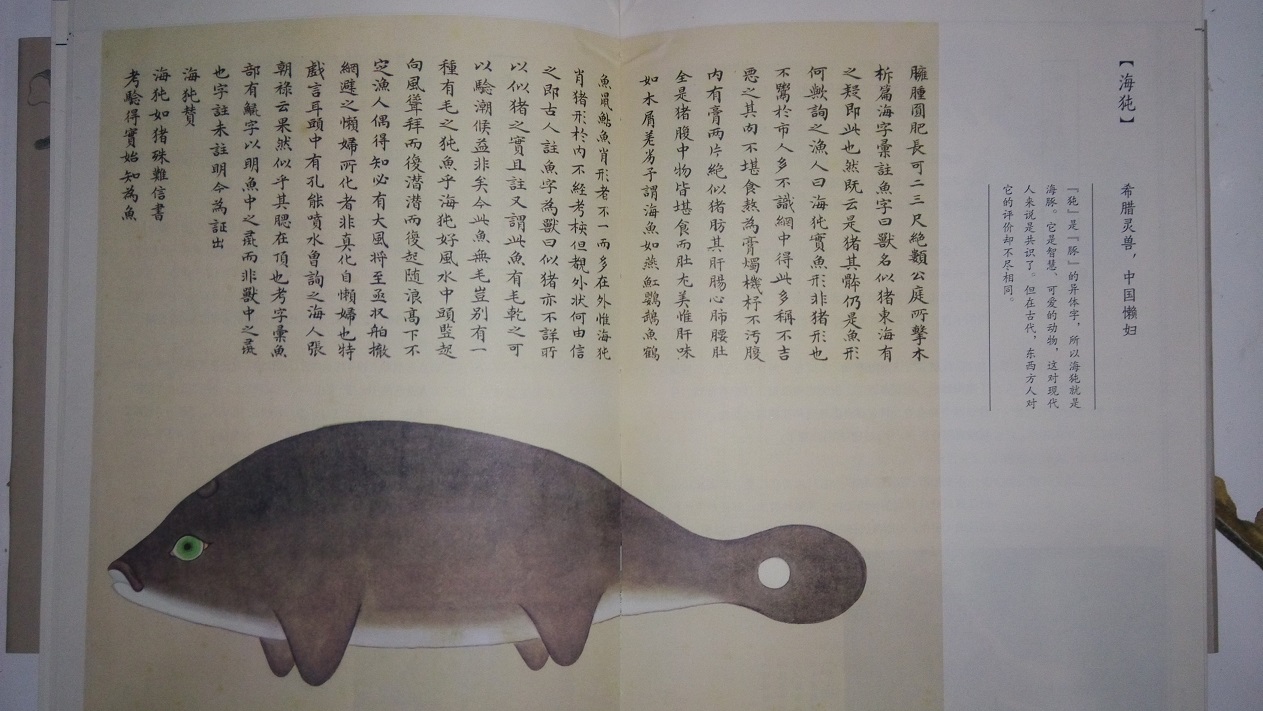 【海㹠】
希腊灵兽，中国懒妇
『㹠』是『豚』的异体字，所以海㹠就是
海豚。它是智慧、可爱的动物，这对现代
人来说是共识了。但在古代，东西方人对
它的评价却不尽相同。
臃腫圓肥長可二三尺絶類公庭所擊木
柝篇海字彙註魚字曰獸名似猪東海有
之疑即此也然既云是猪其骵仍是魚形
何歟詢之漁人曰海㹠實魚形非猪形也
不鬻於市人多不識網中得此多稱不吉
惡之其肉不堪食熬為膏燭機杼不汚腹
内有膏兩片絶似猪肪其肝腸心肺腰肚
全是猪腹中物皆堪食而肚尤美惟肝味
如木屑差劣子謂海魚如燕魟鸚鵡魚鶴
魚鼠鮎魚肖形者不一而多在外惟海㹠
肖猪形於内不經考核但覩外狀何由信
之即古人註魚字為獸曰似猪亦不詳所
以似猪之實且註又謂此魚有毛乾之可
以驗潮候益非矣今此魚無毛豈别有一
種有毛之㹠魚乎海㹠好風水中頭竪起
向風聳拜而後潜潜而復起随浪高下不
定漁人偶得知必有大風將至亟収舶撤
網避之懶婦所化者非真化自懶婦也特
戲言耳頭中有孔能噴水曽詢之海人張
朝祿云果然似乎其腮在頂也考字彙魚
部有鱟字以明魚中之鱟而非獸中之鱟
也字註未註明今為証出
海㹠賛
海㹠如猪殊難信書
考驗得實始知為魚